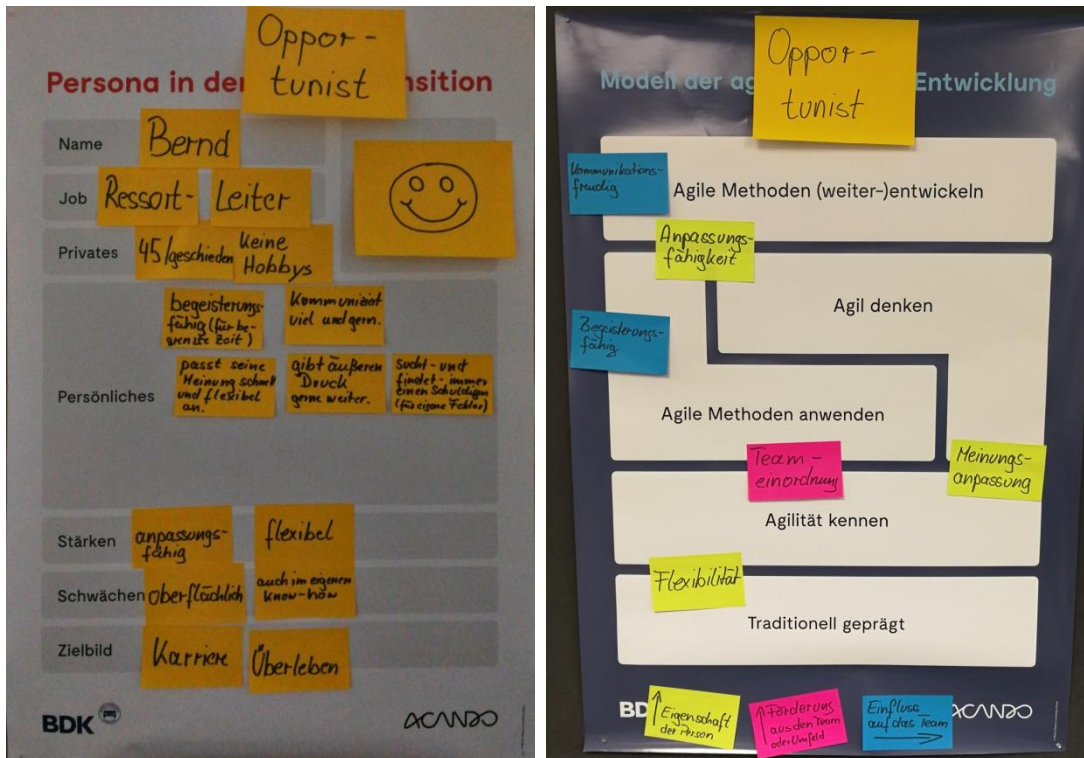 Oppor-
tunist
Persona in der
nsition
Name
Bernd
Job
Ressort-
Leiter
Privates
45/geschieden
Keine
Hobbys
Persönliches
begeisterungs-
fähig (für be-
grenzte Zeit)
Kommuniziert
viel und gern.
passt seine
Meinung schnell
und flexibel
an.
gibt äußeren
Druck
gerne weiter.
Sucht - und
findet - immer
einen Schuldigen
(für eigene Fehler)
Stärken
anpassungs-
fähig
flexibel
Schwächen
oberflächlich
auch im eigenen
Know-how
Zielbild
Karriere
Überleben
BDK
ACANDO
Oppor-
tunist
Modell der ag
Entwicklung
Kommunikations-
freudig
Agile Methoden (weiter-)entwickeln
Anpassungs-
fähigkeit
Agil denken
Begeisterungs-
fähig
Agile Methoden anwenden
Team-
einordnung
Meinungs-
anpassung
Agilität kennen
Flexibilität
Traditionell geprägt
BD
Eigenschaft
der Person
Förderung
aus dem Team
oder Umfeld
Einfluss
auf das Team
ACANDO